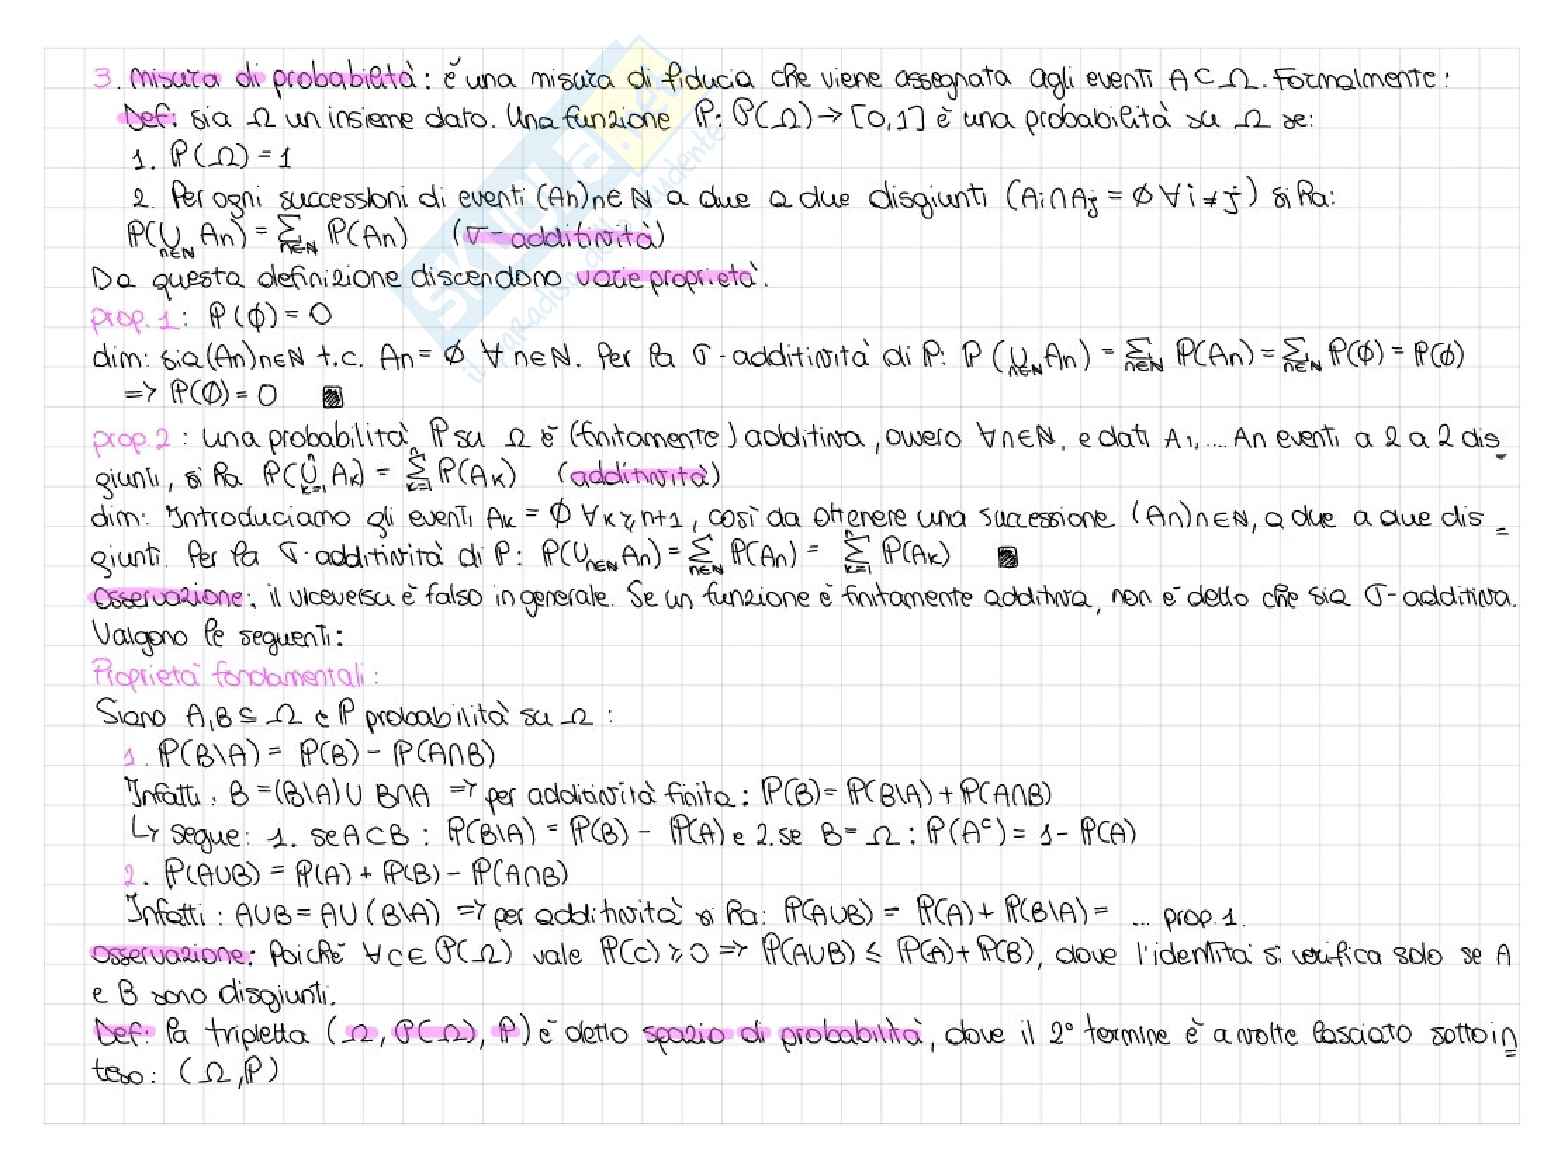 3. misura di probabilità: è una misura di fiducia che viene assegnata agli eventi A⊂Ω. Formalmente:
Def: sia Ω un insieme dato. Una funzione ℙ: 𝒫(Ω)→[0,1] è una probabilità su Ω se:
1. ℙ(Ω)=1
2. Per ogni successioni di eventi (An)n∈ℕ a due a due disgiunti (Ai∩Aj = ∅ ∀i≠j) si ha:
ℙ(⋃n∈ℕ An) = Σn∈ℕ ℙ(An) (σ-additività)
Da questa definizione discendono varie proprietà.
prop. 1: ℙ(∅)=0
dim: sia (An)n∈ℕ t.c. An=∅ ∀n∈ℕ. Per la σ-additività di ℙ: ℙ(⋃n∈ℕ An) = Σn∈ℕ ℙ(An) = Σn∈ℕ ℙ(∅) = ℙ(∅)
=> ℙ(∅)=0
prop. 2: una probabilità ℙ su Ω è (finitamente) additiva, ovvero ∀n∈ℕ, e dati A1,... An eventi a 2 a 2 dis-
giunti, si ha ℙ(⋃ⁿk=1 Ak) = Σⁿk=1 ℙ(Ak) (additività)
dim: Introduciamo gli eventi Ak = ∅ ∀k≥n+1, così da ottenere una successione (An)n∈ℕ, a due a due dis=
giunti. Per la σ-additività di ℙ: ℙ(⋃n∈ℕ An) = Σn∈ℕ ℙ(An) = Σⁿk=1 ℙ(Ak)
Osservazione: il viceversa è falso in generale. Se un funzione è finitamente additiva, non è detto che sia σ-additiva.
Valgono le seguenti:
Proprietà fondamentali:
Siano A,B⊆Ω e ℙ probabilità su Ω:
1. ℙ(B\A) = ℙ(B) - ℙ(A∩B)
Infatti: B=(B\A)∪ B∩A => per additività finita: ℙ(B)= ℙ(B\A)+ℙ(A∩B)
↳ segue: 1. se A⊂B : ℙ(B\A) = ℙ(B) - ℙ(A) e 2. se B=Ω : ℙ(Aᶜ) = 1-ℙ(A)
2. ℙ(A∪B) = ℙ(A)+ℙ(B)-ℙ(A∩B)
Infatti: A∪B=A∪(B\A) => per additività si ha: ℙ(A∪B) = ℙ(A)+ℙ(B\A)= ... prop. 1.
Osservazione: Poiché ∀C∈𝒫(Ω) vale ℙ(C)≥0 => ℙ(A∪B) ≤ ℙ(A)+ℙ(B), dove l'identità si verifica solo se A
e B sono disgiunti.
Def: la tripletta (Ω, 𝒫(Ω), ℙ) è detto spazio di probabilità, dove il 2° termine è a volte lasciato sottoin=
teso: (Ω,ℙ)
SKUOLA.net
il paradiso dello studente